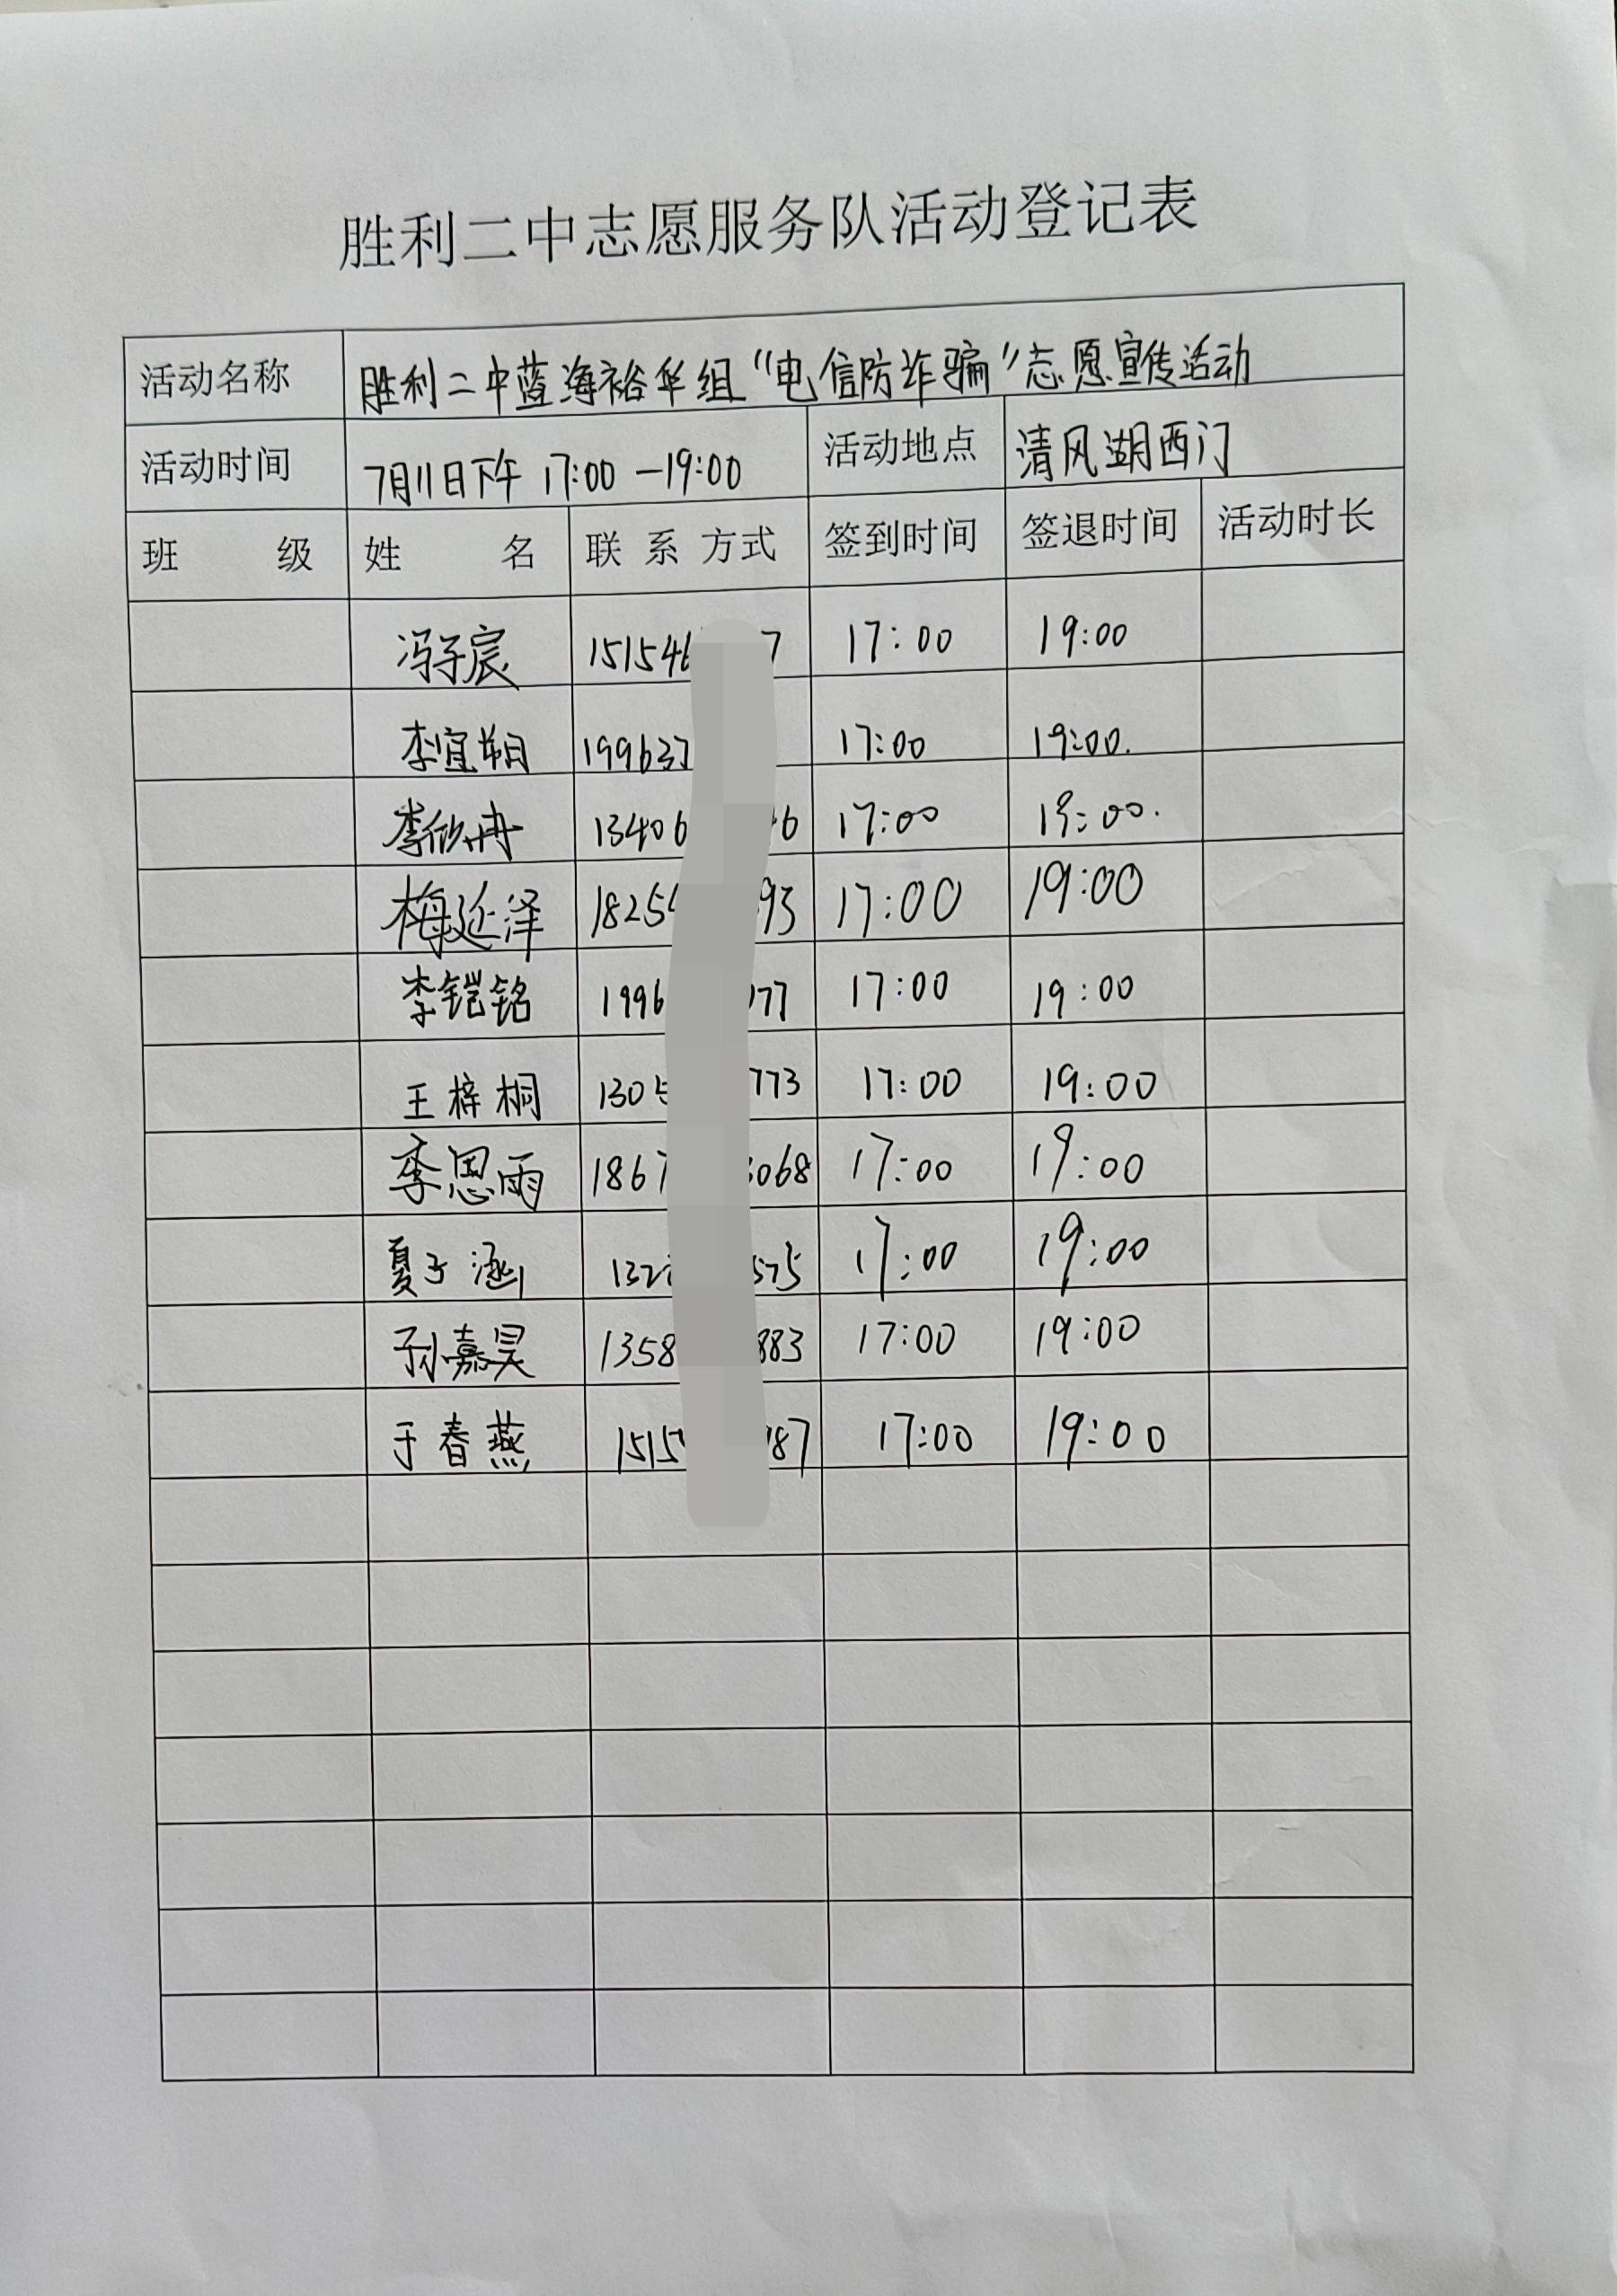 胜利二中志愿服务队活动登记表
活动名称 胜利二中蓝海裕华组“电信防诈骗”志愿宣传活动
活动时间 7月11日下午 17:00 —19:00 活动地点 清风湖西门
班 级 姓 名 联 系 方式 签到时间 签退时间 活动时长
冯子宸 15154 7 17:00 19:00
李宜 199637 17:00 19:00.
李欣冉 13406 6 17:00 19:00.
梅延泽 1825 93 17:00 19:00
李铠铭 1996 77 17:00 19:00
王梓桐 130 773 17:00 19:00
李思雨 1867 068 17:00 19:00
夏子涵 132 575 17:00 19:00
孙嘉昊 1358 883 17:00 19:00
于春燕 1515 87 17:00 19:00